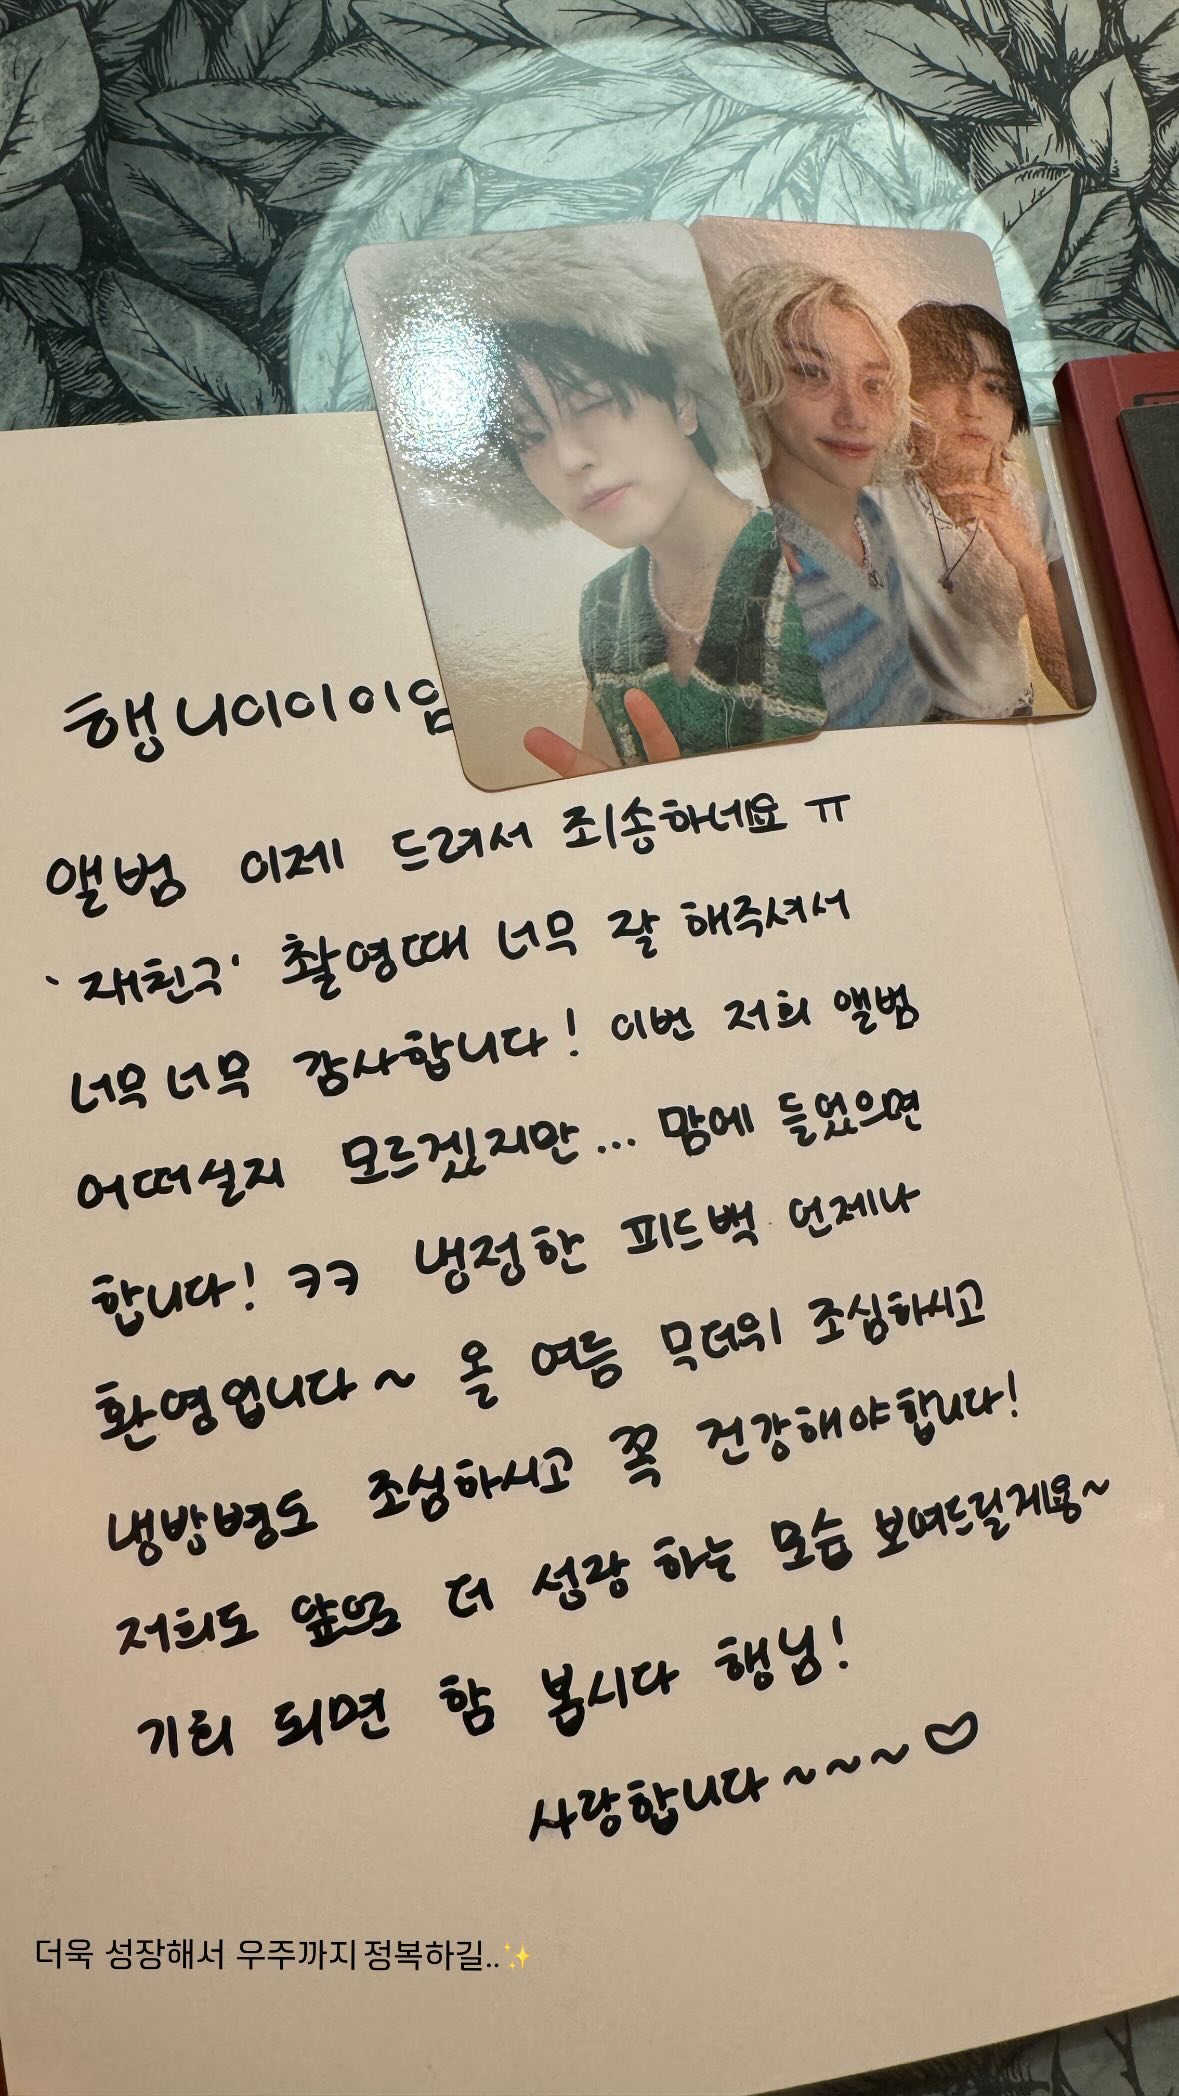 행니이이이임
앨범 이제 드려서 죄송하네요 ㅠ
'재친구' 촬영때 너무 잘 해주셔서
너무너무 감사합니다! 이번 저희 앨범
어떠실지 모르겠지만... 맘에 들었으면
합니다! ㅋㅋ 냉정한 피드백 언제나
환영입니다~ 올 여름 무더위 조심하시고
냉방병도 조심하시고 꼭 건강해야합니다!
저희도 앞으로 더 성장 하는 모습 보여드릴게용~
기회 되면 함 봅시다 행님!
사랑합니다~~~♡
더욱 성장해서 우주까지 정복하길..✨